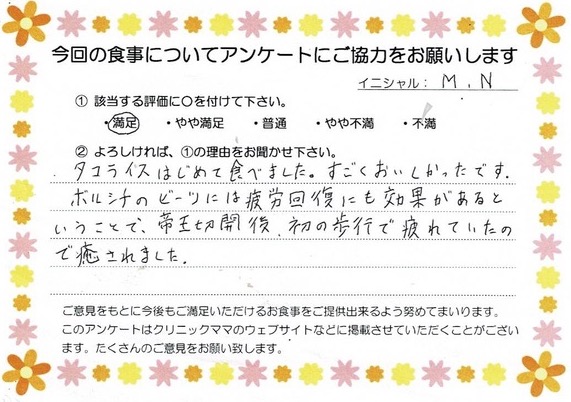 今回の食事についてアンケートにご協力をお願いします
イニシャル： M．N
① 該当する評価に○を付けて下さい。
・満足 ・やや満足 ・普通 ・やや不満 ・不満
② よろしければ、①の理由をお聞かせ下さい。
タコライスはじめて食べました。すごくおいしかったです。
ボルシチのビーツには疲労回復にも効果があると
いうことで、帝王切開後、初の歩行で疲れていたの
で癒されました。
ご意見をもとに今後もご満足いただけるお食事をご提供出来るよう努めてまいります。
このアンケートはクリニックママのウェブサイトなどに掲載させていただくことがござい
ます。たくさんのご意見をお願い致します。